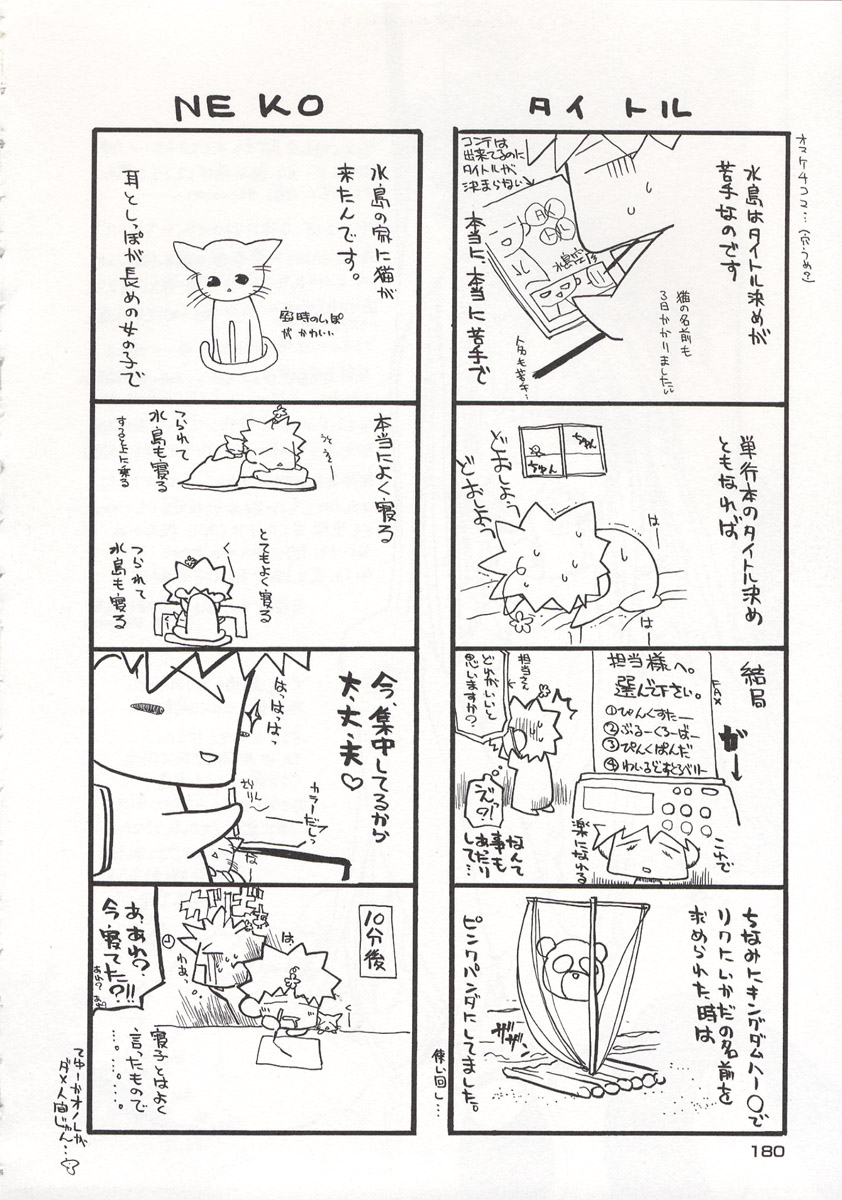 オマケ4コマ…(穴うめ?)
タイトル
水島はタイトル決めが
苦手なのです
猫の名前も
3日かかりました
コンテは
出来てるのに
タイトルが
決まらない
水島空彦
本当に、本当に苦手で
人名も苦手…
単行本のタイトル決め
ともなれば
ちゅん
ちゅん
どおしよっ
どおしよっ
はー
はー
結局
FAX
担当様へ。
選んで下さい。
①ぴんくすたー
②ぶるーくろーばー
③ぴんくぱんだ
④わいるどすとろべりー
ガーー
これで
楽になれる
担当さん
どれがいいと
思いますか?
えっ?!
なんて
事も
あったり
して…
ちなみにキングダムハー○で
リクにいかだの名前を
求められた時は
ザザ
ピンクパンダにしてました。
使い回し…
NEKO
水島の家に猫が
来たんです。
耳としっぽが長めの女の子で
この時のしっぽ
がかわいい
本当によく寝る
うそうそー
つられて
水島も寝る
すると上に乗る
とてもよく寝る
くー
つられて
水島も寝る
今、集中してるから
大、丈、夫♡
は、はっはっ
ぞりん
カラーだしっ
な
10分後
は
くー
わあっ
あ、あれ?
今寝てた?!!
あれ?
寝子とはよく
言ったもので
……。…。
てゆーかオノレが
ダメ人間じゃん…
180